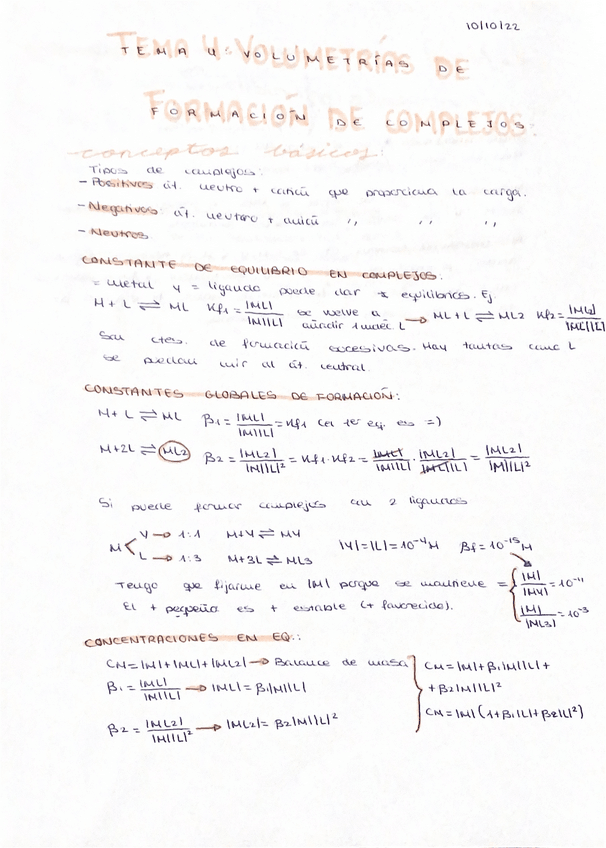 10/10/22
TEMA 4: VOLUMETRÍAS DE
FORMACIÓN DE COMPLEJOS:
conceptos básicos:
Tipos de complejos:
- Positivos át. neutro + catión que proporciona la carga.
- Negativos át. neutro + anión ,, ,, ,,
- Neutros
CONSTANTE DE EQUILIBRIO EN COMPLEJOS:
= metal y = ligando puede dar ≠ equilibrios. Ej
M + L ⇌ ML Kf1 = |ML| / |M||L| se vuelve a añadir 1 mol L → ML + L ⇌ ML2 Kf2 = |ML2| / |ML||L|
Son ctes. de formación sucesivas. Hay tantas como L
se puedan unir al át. central.
CONSTANTES GLOBALES DE FORMACIÓN:
M + L ⇌ ML β1 = |ML| / |M||L| = Kf1 (el 1er eq. es =)
M + 2L ⇌ ML2 β2 = |ML2| / |M||L|² = Kf1 · Kf2 = |ML| / |M||L| · |ML2| / |ML||L| = |ML2| / |M||L|²
Si puede formar complejos con 2 ligandos
M Y → 1:1 M + Y ⇌ MY |Y| = |L| = 10⁻⁴ M βf = 10⁻¹⁵ M
L → 1:3 M + 3L ⇌ ML3
Tengo que fijarme en |M| porque se mantiene = { |M| / |MY| = 10⁻¹¹
El + pequeño es + estable (+ favorecido). |M| / |ML3| = 10⁻³
CONCENTRACIONES EN EQ.:
CM = |M| + |ML| + |ML2| → Balance de masa
β1 = |ML| / |M||L| → |ML| = β1|M||L|
β2 = |ML2| / |M||L|² → |ML2| = β2|M||L|²
CM = |M| + β1|M||L| +
+ β2|M||L|²
CM = |M| (1 + β1|L| + β2|L|²)